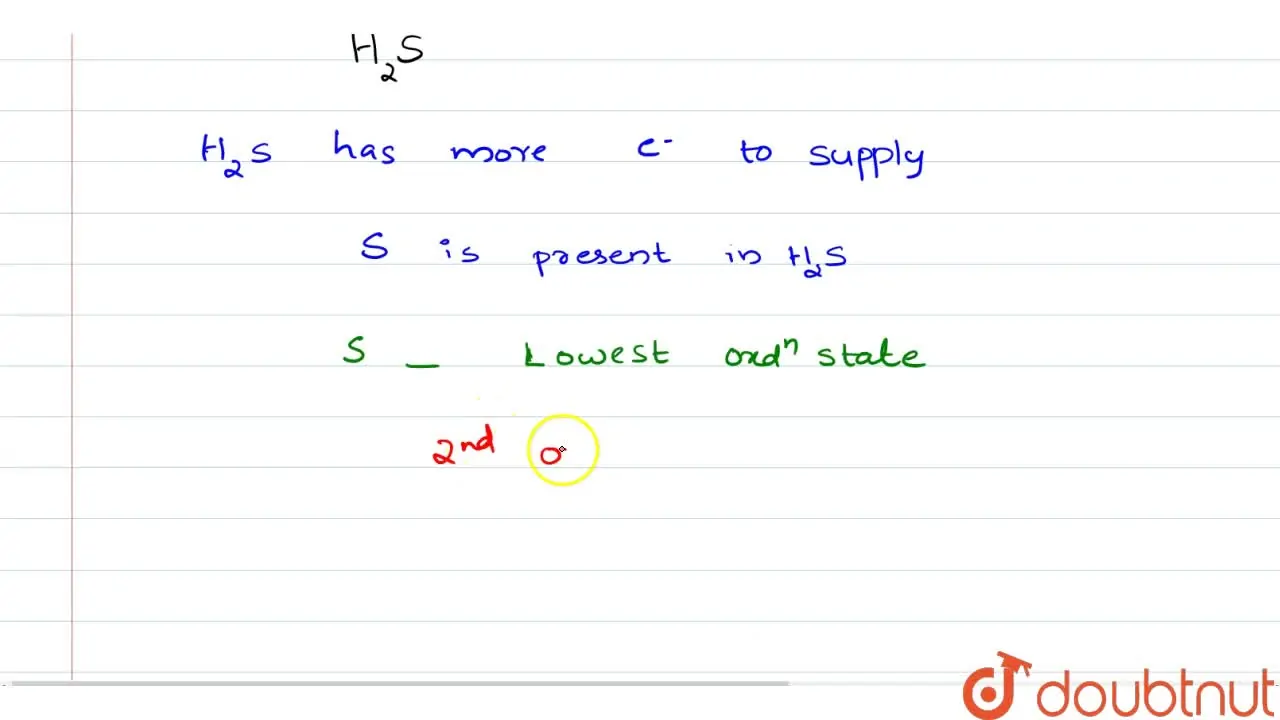 H₂S
H₂S has more e⁻ to supply
S is present in H₂S
S _ Lowest oxdⁿ state
2nd o
doubtnut